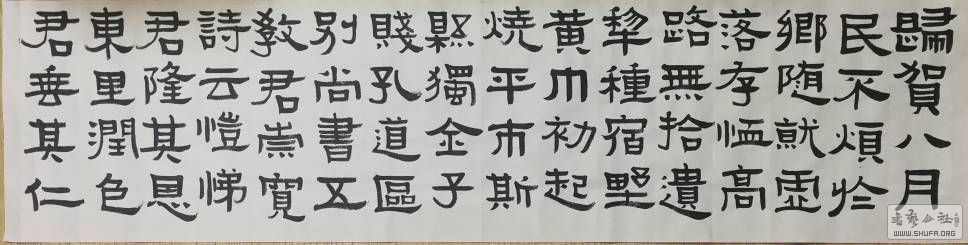 歸賀八月
民不煩於
鄉随就虚
落存恤高
路無拾遺
犂種宿野
黄巾初起
燒平市斯
縣獨金子
賤孔道區
别尚書五
教君崇寬
詩云愷悌
君隆其恩
東里潤色
君垂其仁
书艺公社
WWW.SHUFA.ORG